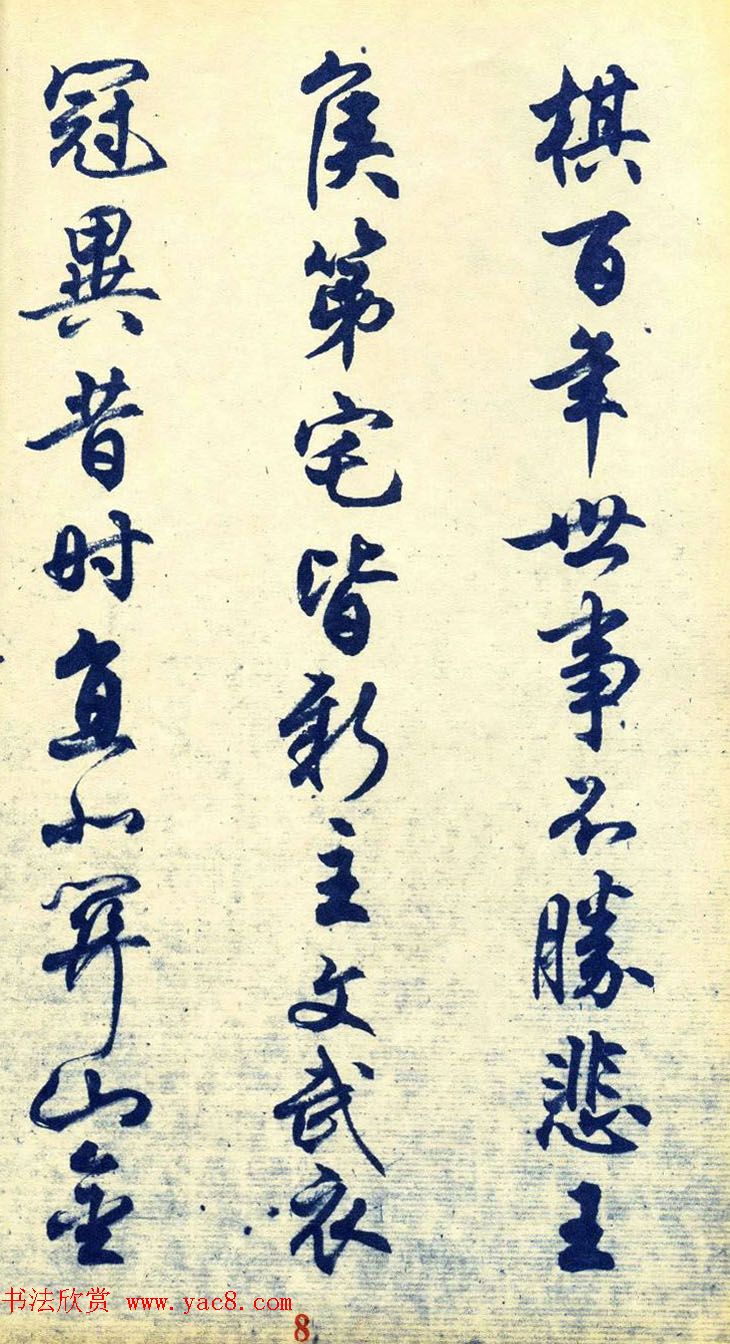 棋百年世事不勝悲王
侯第宅皆新主文武衣
冠異昔时直北関山金
书法欣赏 www.yac8.com
8